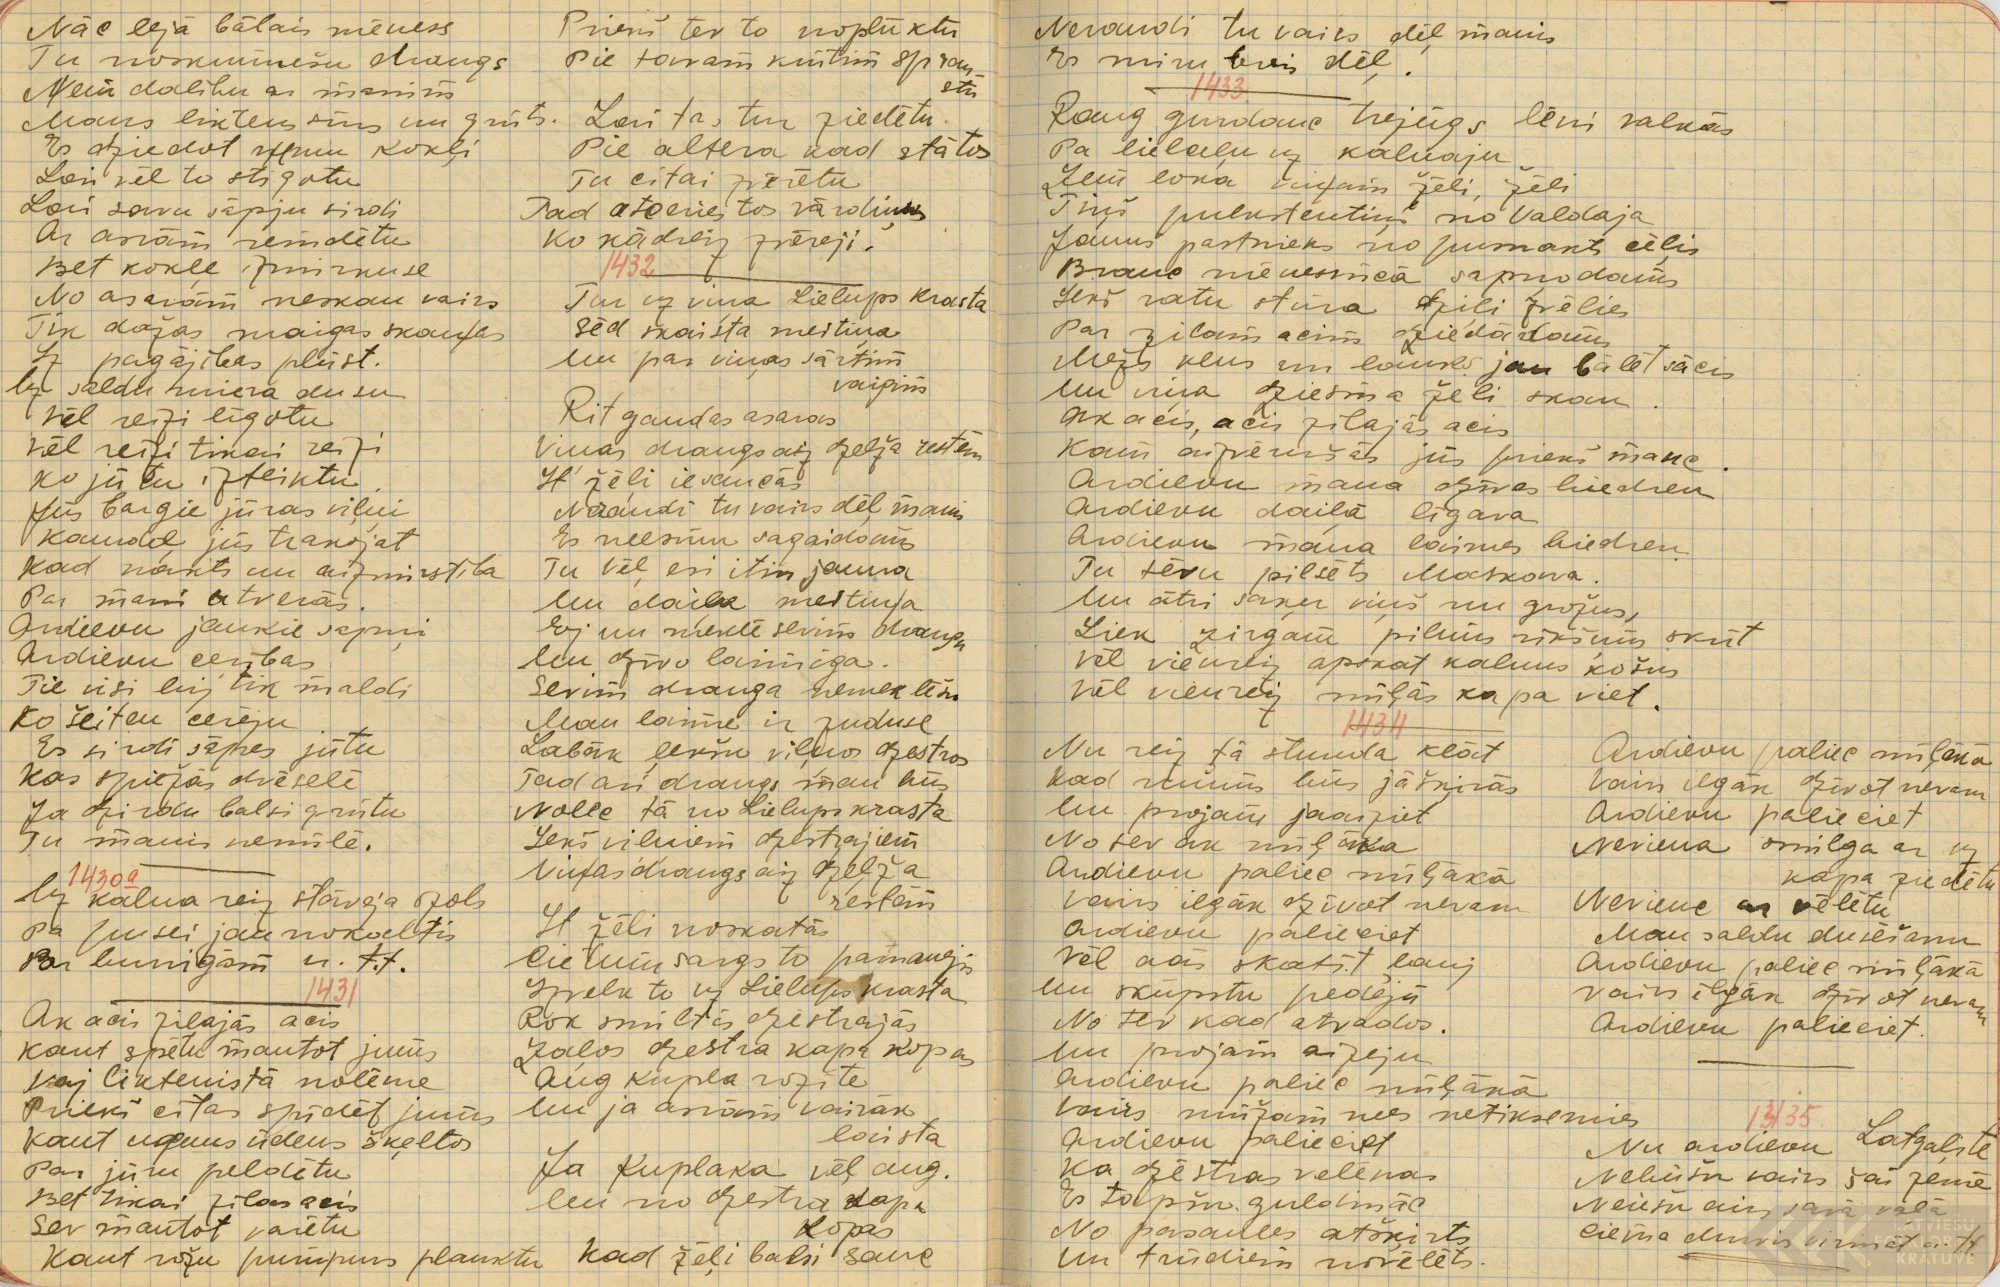 Nāc lejā bālais mēness
Tu noskumušu draugs
Nem dalību ar manim
Mans liktens sūrs un grūts.
Es dziedot nemu kokli
Lai vēl to stīgotu
Lai savu sāpju sirdi
Ar asrām remdētu
Bet kokle izmirkuse
No asarām neskan vairs
Tik dažas maigas skanas
Iz pagājības plūst.
Uz saldu miera dusu
Vēl reizi līgotu
Vēl reizi tikai reizi
Ko jūtu izteiktu
Jūs bargie jūras vilni
Kamdēl jūs trakojat
Kad nakts un aizmirstība
Par mani atveras.
Ardievu jaukie sapni
Ardievu cerības
Tie visi bij tik maldi
Ko šeiten cerēju
Es sirdī sāpes jūtu
Kas spiežās dvēselē
Ja dzirdu balsi grūtu
Tu manis nemīlē.
1430a
Uz kalna reiz stāvēja ozols
Pa pusei jau nokaltis
Par burvigām u. t.t.
1431
Ak acis zilajās acis
Kaut spētu mantot jums
Vaj liktenis tā nolēme
Priekš citas spīdēt jums
Kaut uguns ūdens šķeltos
Par jūru peldētu
Bet tikai zilas acis
Sev mantot varētu
Kaut rožu pumpurs plauktu
Priekš tev to noplūktu
Pie tavām krūtīm sprau-
stu
Lai tas tur ziedētu.
Pie altera kad stātos
Tu citai zvērētu
Tad atceries tos vārdinus
Ko kādreiz zvēreji.
1432
Tur uz vina Lielups krasta
Sēd skaista meitina
Un par vinas sārtim
vaigim
Rit gaudas asaras
Vinas draugs aiz dzelža restēm
It žēli iesaucās
Neraudi tu vairs dēl manis
Es neesmu sagaidams
Tu vēl esi itin jauna
Un daila meitina
Ej un meklē sevim draugu
Un dzīvo laimiga.
Sevim drauga nemeklēšu
Man laime ir zuduse
Labāk lēkšu vilnos dzestros
Tad ari draugs man būs
Nolec tā no Lielups krasta
Iekš vilniem dzestrajiem
Vinas draugs aiz dzelža
restēm
It žēli noskatās
Cietum sargs to pamanejis
Izvelk to uz Lielups krasta
Rok smiltis dzestrajās
Zalos dzestra kapa kopas
Aug kupla rozite
Un ja asrām vairāk
laista
Ja Kuplaka vēl aug.
Un no dzestra kapa
kopas
Kad žēli balsi sauc
Neraudi tu vairs dēl manis
Es miru tevis dēl!
1433.
Raug gurdanc trejūgs lēni valkās
Pa lielcelu uz kalnaju
Zem loka vinam žēli, žēli
Tinš pulkstentinš no Valdaja
Jauns pastnieks no pusnakts cēlis
Brauc mēnesnīcā sapnodams
Iekš ratu stūra dzili zvēlies
Par zilam acim dziedādams
Mežs kluss un lauks jau bālēt sācis
Un vina dziesma žēli skan.
Ak acis, acis zilajās acis
Kam aizvērušās jūs priekš mane.
Ardievu mana dzīves biedren
Ardievu dailā līgava
Ardievu mana laimes biedren
Tu tēvu pilsēts Maskova.
Un ātri saker vinš nu grožus,
Liek zirgam pilnus rikšus skriet
Vēl vienreiz apskat kalnus košus
Vēl vienreiz mīlās kapa viet.
1434
Nu reiz tā stunda klāt
Kad mums būs jāšķirās
Un projam jaaiziet
No tev ak mīlāka
Ardievu paliec mīlākā
Vairs ilgāk dzīvot nevam
Ardievu palieciet
Vēl acis skatīt lauj
Un skūpstu pedējū
No tev kad atvados.
Un projam aizeju
Ardievu paliec mīlākā
Vairs mūžam mēs netiksemies
Ardievu palieciet
Ka dzēstras velenas
Es tapšu guldināc
No pasaules atšķirts
Un trūdiem novēlēts.
Ardievu paliec mīlākā
Vairs ilgāk dzīvot nevam
Ardievu palieciet
Neviena smilga ar uz
kapa ziedētu
Neviens ar vēlētu
Man saldu dusēšanu
Ardievu paliec mīlākā
Vairs ilgāk dzīvot nevam
Ardievu palieciet.
13135
Nu ardievu Latgaliete
Nebūšu vairs šai zemē
Neiešu aiz savā valā
Ciema durvis virināt u. t.t.
LATVIEŠU
FOLKLORAS
KRĀTUVE